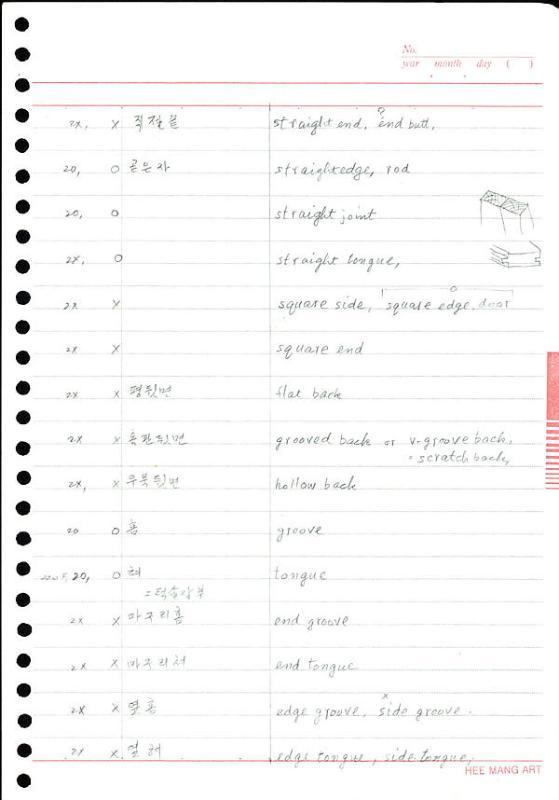 No.
year month day ( )
2x, x 직절끝 straight end, end butt,
20, o 곧은자 straightedge, rod
20, o straight joint
2x, o straight tongue,
2x x square side, square edge, door
2x x square end
2x x 평뒷면 flat back
2x x 홈판뒷면 grooved back or v-groove back,
= scratch back,
2x, x 우묵뒷면 hollow back
20 o 홈 groove
20, o 혀 tongue
2x x 마구리홈 end groove
2x x 마구리혀 end tongue
2x x 옆홈 edge groove, side groove.
2x x. 옆혀 edge tongue, side tongue,
HEE MANG ART